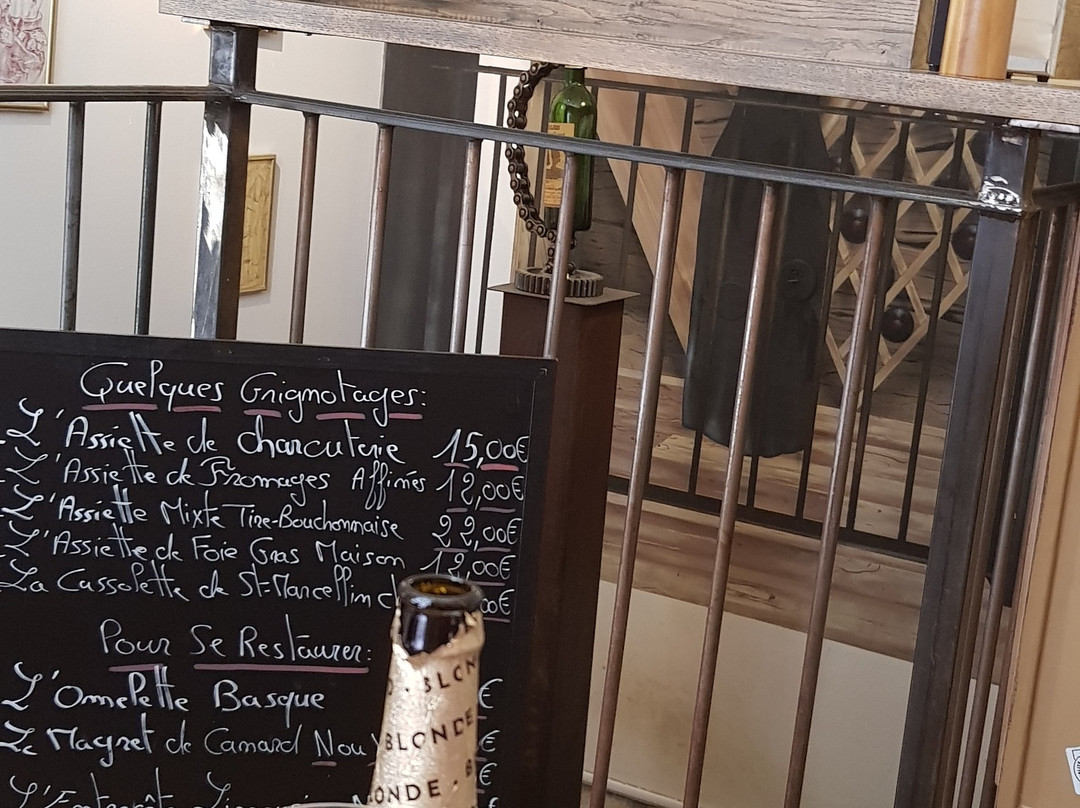 Quelques Grignotages:
L'Assiette de charcuterie 15,00€
L'Assiette de Fromages Affinés 12,00€
L'Assiette Mixte Tire-Bouchonnaise 22,00€
L'Assiette de Foie Gras Maison 12,00€
La Cassolette de St-Marcellin 00€
Pour Se Restaurer:
L'Omelette Basque €
Le Magret de Canard €
L'Entrecôte
BLON
BLONDE
ONDE · B